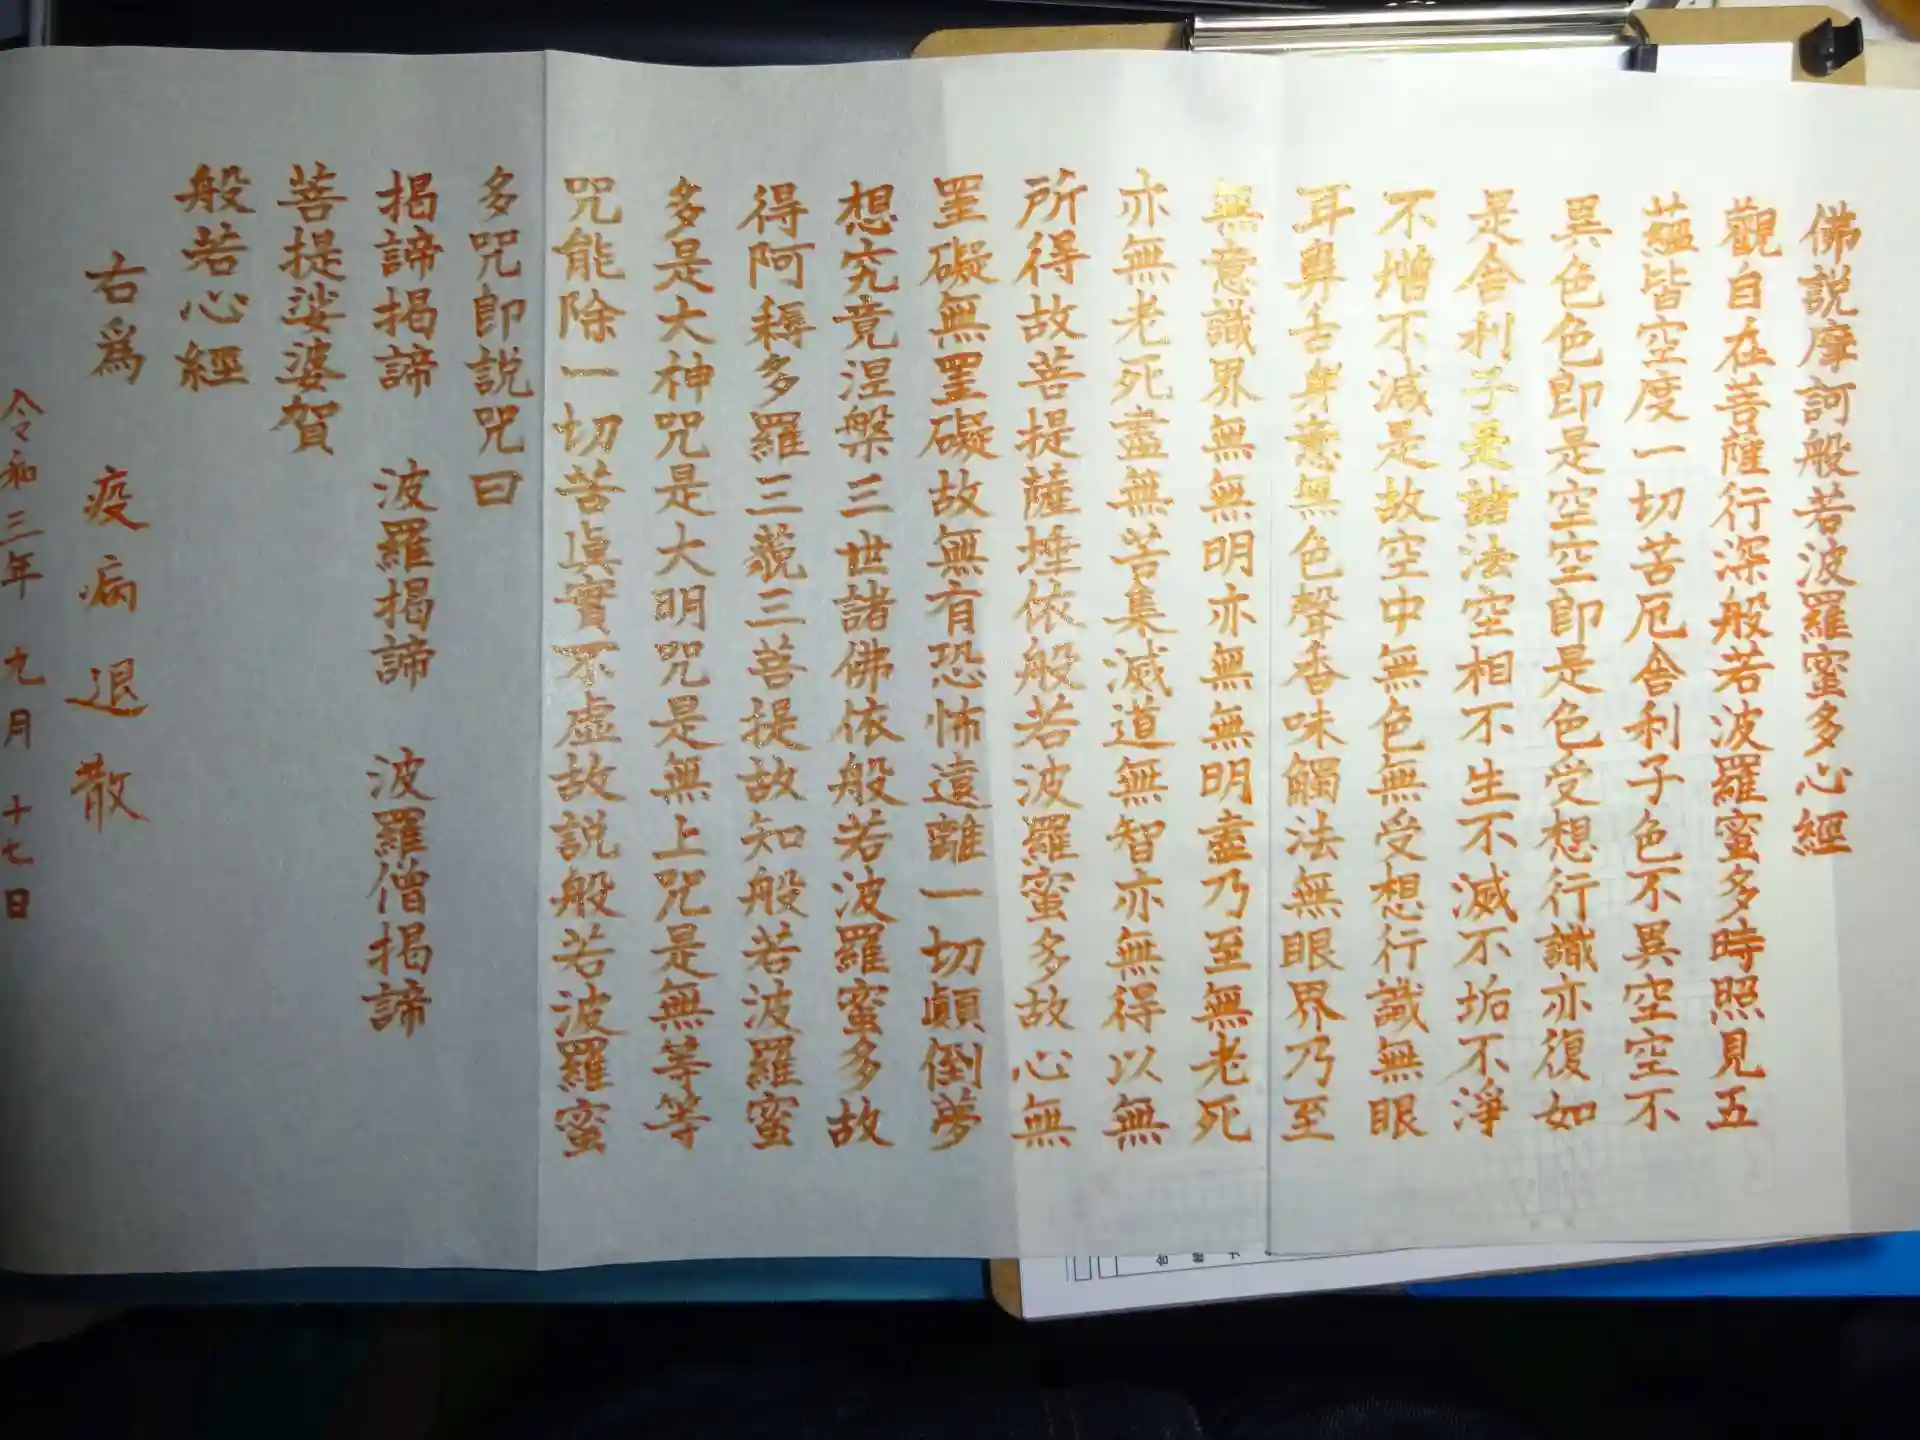 佛説摩訶般若波羅蜜多心經
觀自在菩薩行深般若波羅蜜多時照見五
蘊皆空度一切苦厄舎利子色不異空空不
異色色即是空空即是色受想行識亦復如
是舎利子是諸法空相不生不滅不垢不淨
不增不減是故空中無色無受想行識無眼
耳鼻舌身意無色聲香味觸法無眼界乃至
無意識界無無明亦無無明盡乃至無老死
亦無老死盡無苦集滅道無智亦無得以無
所得故菩提薩埵依般若波羅蜜多故心無
罣礙無罣礙故無有恐怖遠離一切顛倒夢
想究竟涅槃三世諸佛依般若波羅蜜多故
得阿耨多羅三藐三菩提故知般若波羅蜜
多是大神咒是大明咒是無上咒是無等等
咒能除一切苦眞實不虚故説般若波羅蜜
多咒即説咒曰
揭諦揭諦 波羅揭諦 波羅僧揭諦
菩提娑婆賀
般若心經
右爲 疫病退散
令和三年 九月 十七日